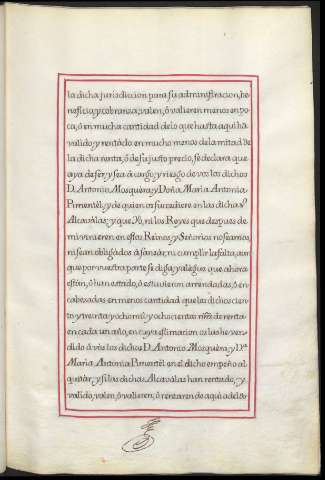 la dicha jurisdiccion para su administracion, be
neficio, y cobranza; valen, ó valieren menos en po
ca, ó en mucha cantidad de lo que hasta aqui ha
valido, y rentádo en mucho menos de la mitad de
la dicha renta, ó de su justo precio, se declara que
aya de ser, y sea á cargo, y riesgo de vos los dichos
D. Antonio Mosquera, y Doña María Antonia
Pimentél, y de quien os succediere en las dichas
Alcavalas; y que Yo, ni los Reyes que despues de
mi vinieren en estos Reinos, y Señorios no seamos,
ni sean obligados á sanear, ni cumplir la falta, aun
que por vuestra parte se diga, y alegue que ahora
están, ó han estado, ó estuvieren arrendadas, ó en
cabezadas en menos cantidad que las dichos cien
to y treinta y ocho mil, y ochocientos mrs de renta
en cada un año, en cuya estimacion os las he ven
dido á vós los dichos D. Antonio Mosquera, y D.ª
María Antonia Pimentél en el dicho empeño al
quitár; y si las dichas Alcavalas han rentado, y
valido, valen, ó valieren, ó rentaren de aqui adelte